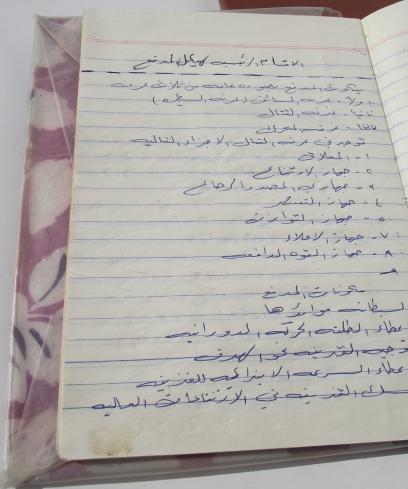 الاقسام الرئيسية لهيكل المدفع
يتكون المدفع بصوره عامه من ثلاث غرف
اولا - غرفه السائق (غرفه السيطره)
ثانيا - غرفه القتال
ثالثا - غرفه المحرك
توجد في غرفه القتال الاجزاء التاليه
١- المغلاق
٢- جهاز الارتفاع
٣- جهازي المصد والارجاع
٤- جهاز التسديد
٥- جهاز التوازن
٧- جهاز الاملاء
٨- جهاز القوه الدافعه
مكونات المدفع
السبطانه فوائدها
اعطاء الطلقه الحركه الدورانيه
توجيه القذيفه نحو الهدف
اعطاء السرعه الابتدائيه للقذيفه
القذيفه في الارتفاعات العاليه